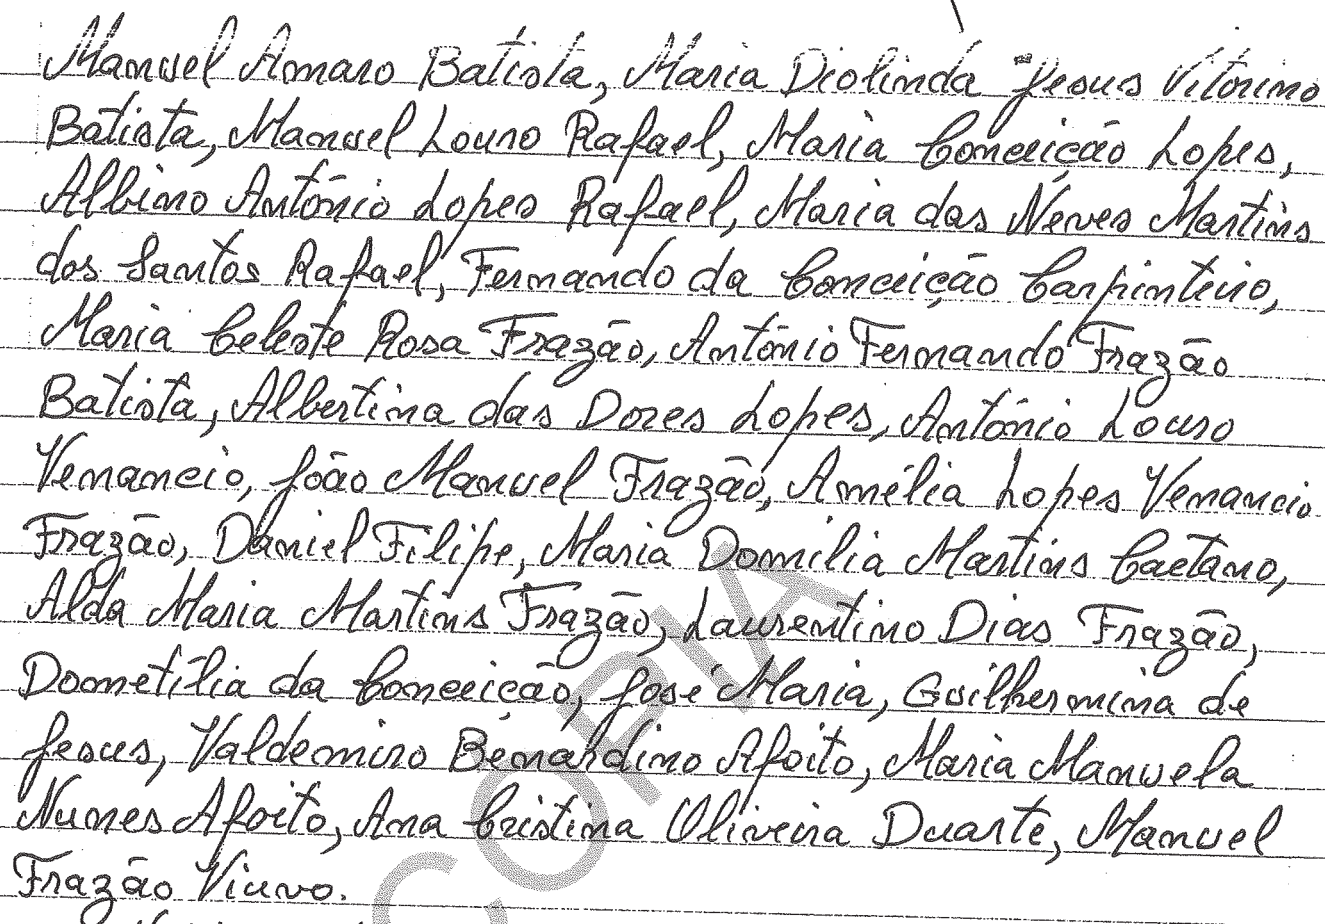 Manuel Amaro Batista, Maria Diolinda Jesus Vitorino
Batista, Manuel Louro Rafael, Maria Conceição Lopes,
Albino António Lopes Rafael, Maria das Neves Martins
dos Santos Rafael, Fernando da Conceição Carpinteiro,
Maria Celeste Rosa Frazão, António Fernando Frazão
Batista, Albertina das Dores Lopes, António Louro
Venancio, João Manuel Frazão, Amélia Lopes Venancio
Frazão, Daniel Filipe, Maria Domilia Martins Caetano,
Alda Maria Martins Frazão, Laurentino Dias Frazão,
Dometília da Conceição, José Maria, Guilhermina de
Jesus, Valdemiro Benardino Afoito, Maria Manuela
Nunes Afoito, Ana Cristina Oliveira Duarte, Manuel
Frazão Viuvo.
COPIA